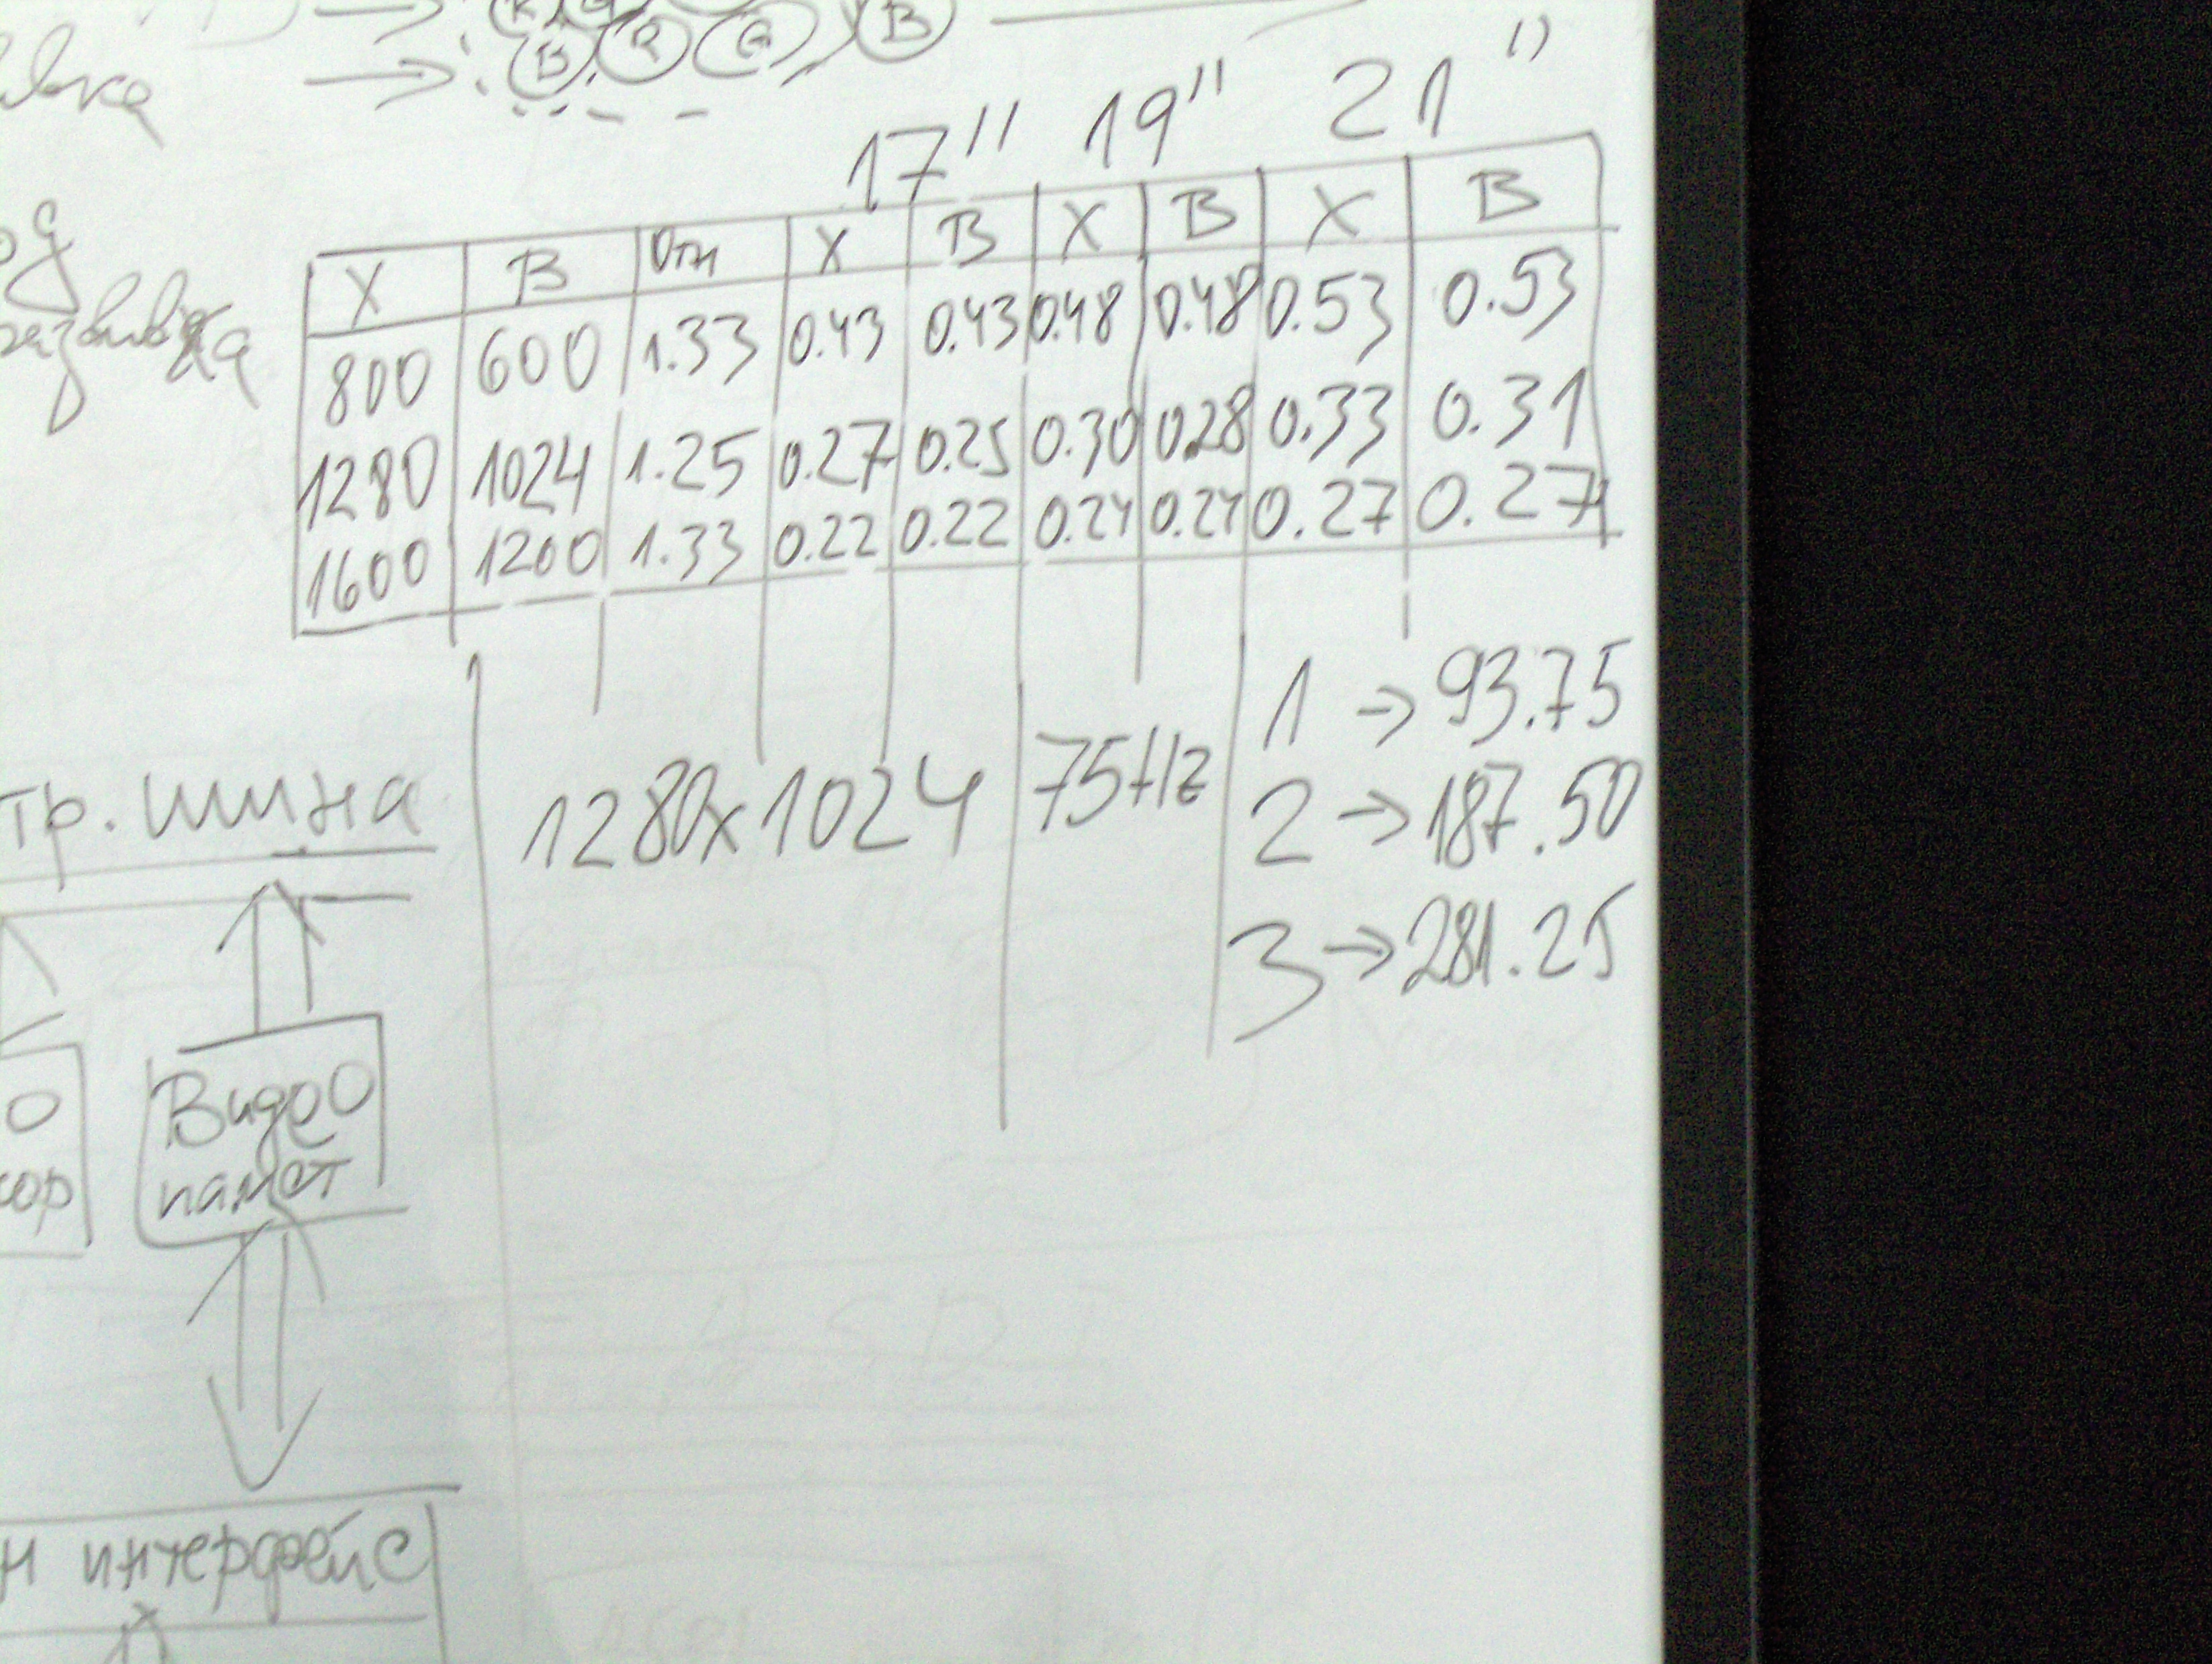 B R G B
17" 19" 21"
X B Отн X B X B X B
800 600 1.33 0.43 0.43 0.48 0.48 0.53 0.53
1280 1024 1.25 0.27 0.25 0.30 0.28 0.33 0.31
1600 1200 1.33 0.22 0.22 0.24 0.24 0.27 0.27
1 → 93.75
тр. шина 1280x1024 75Hz 2 → 187.50
3 → 281.25
Видео
памет
н интерфейс